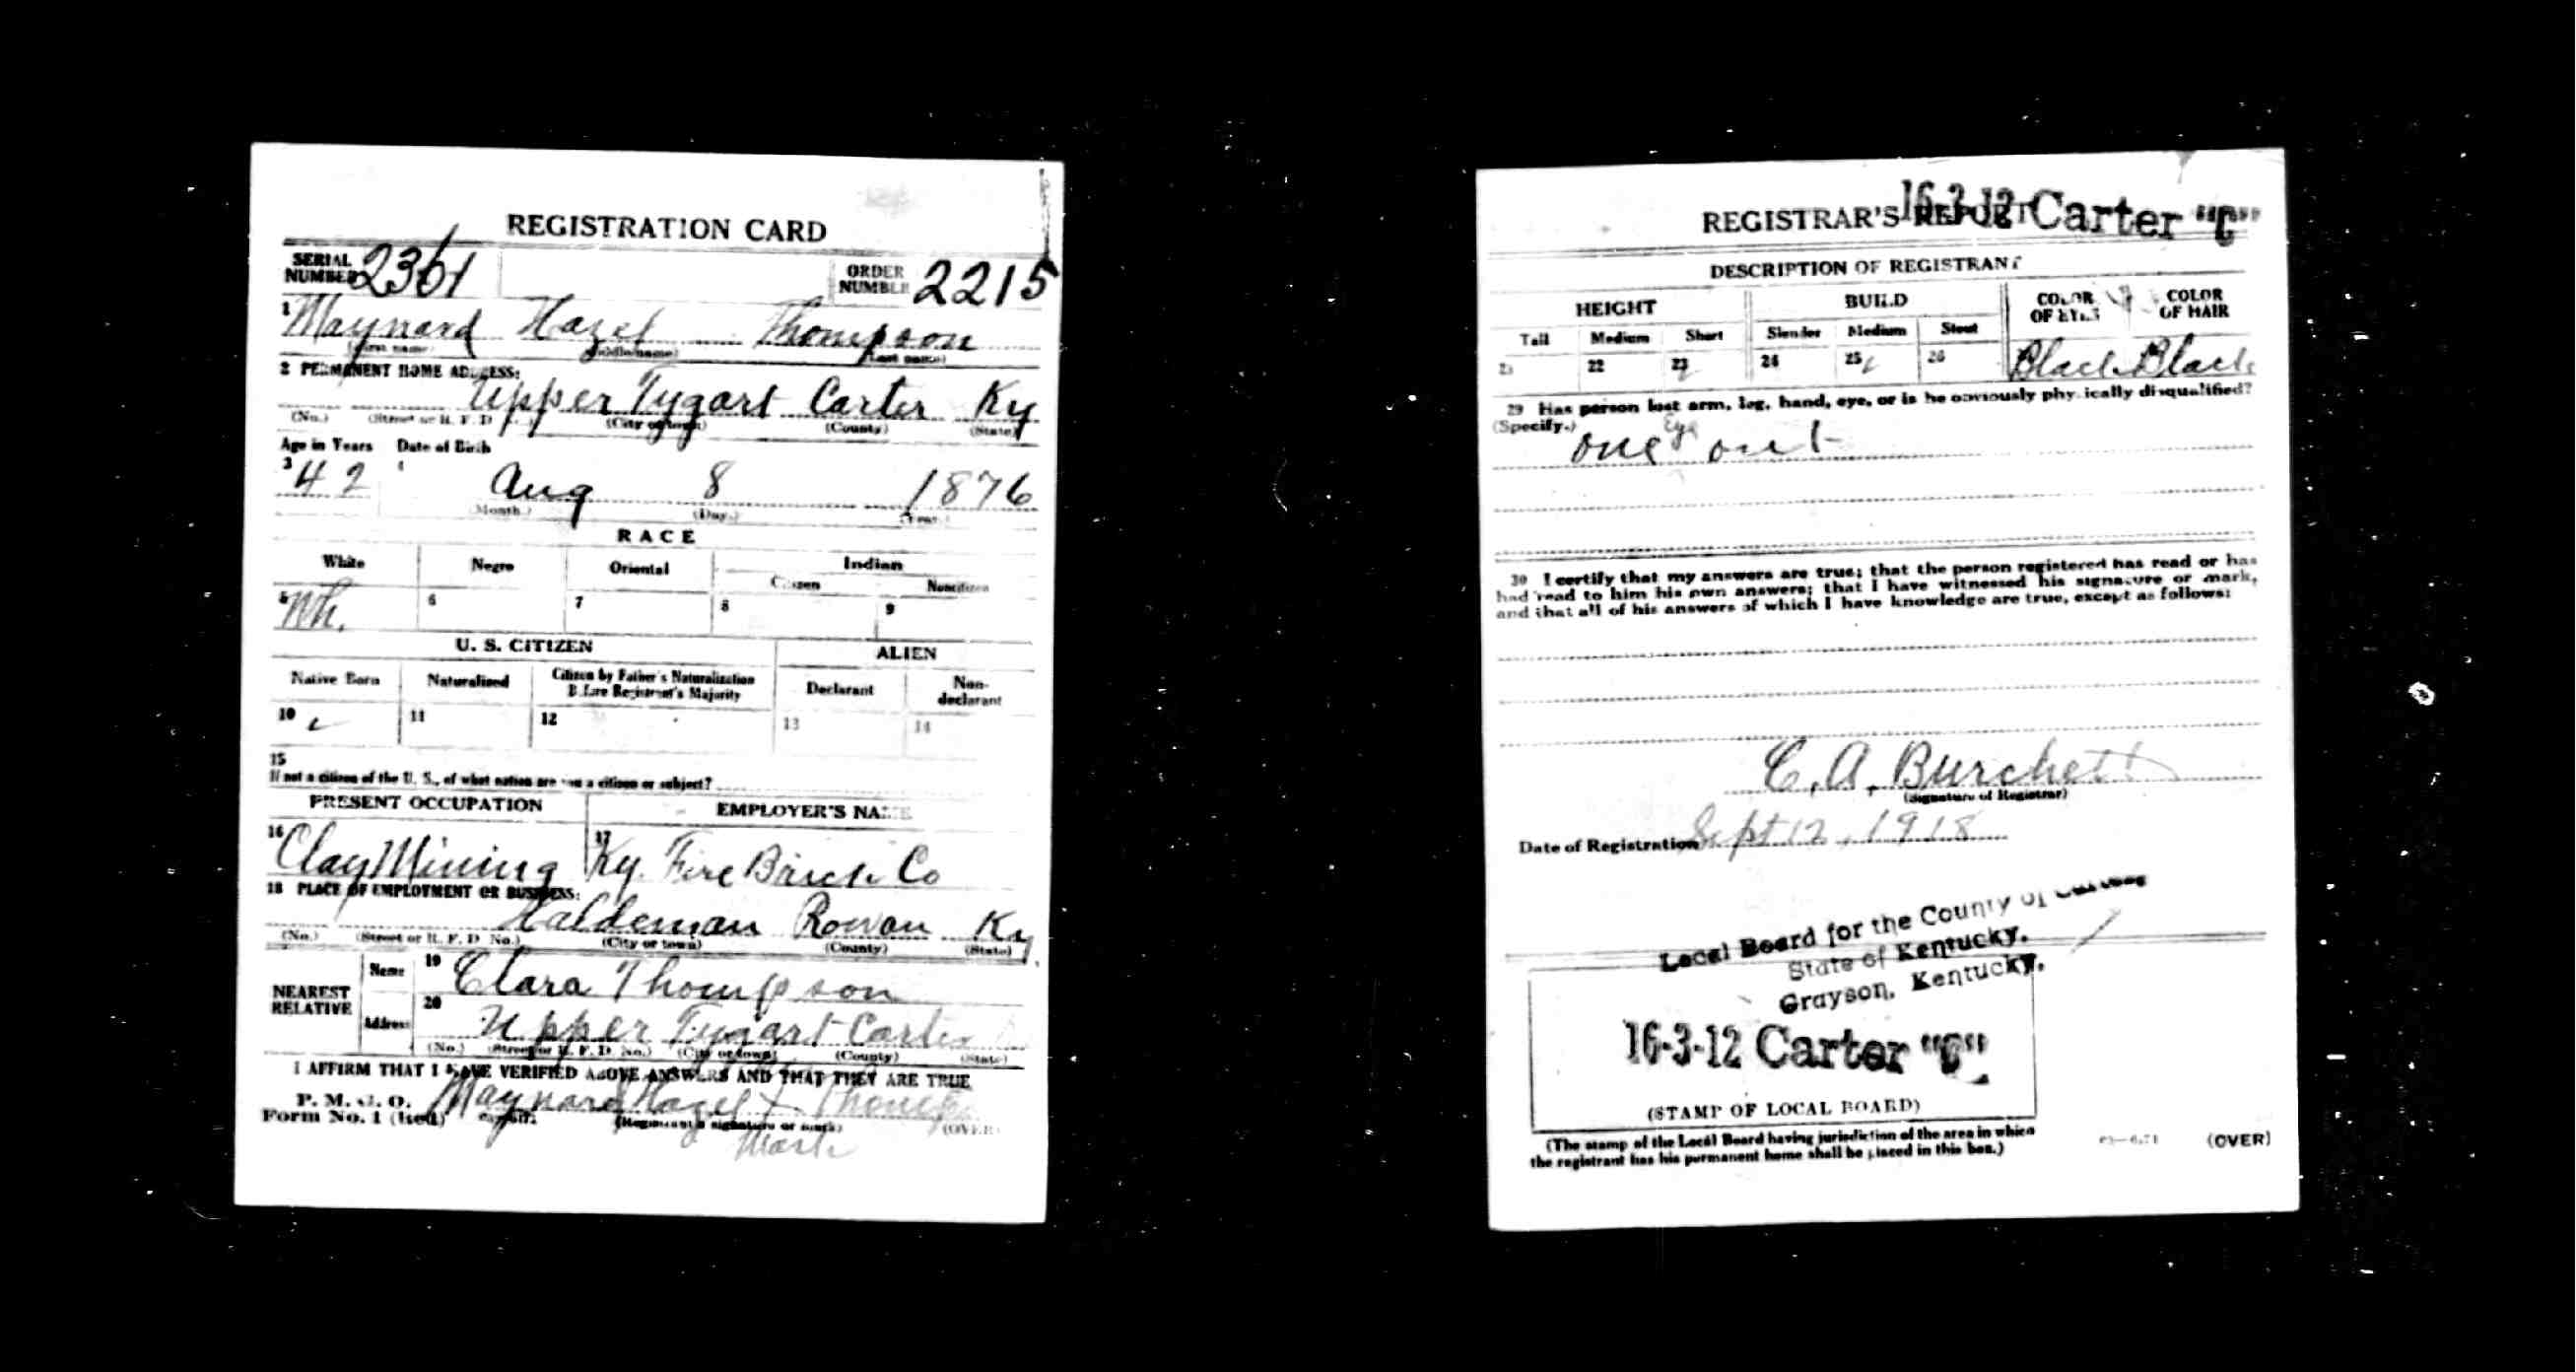 REGISTRATION CARD
SERIAL NUMBER 2361 ORDER NUMBER 2215
1 Maynard Hazel Thompson
(First name) (Middle name) (Last name)
2 PERMANENT HOME ADDRESS:
Upper Tygart Carter Ky
(No.) (Street or R. F. D. No.) (City or town) (County) (State)
Age in Years Date of Birth
3 42 4 Aug 8 1876
(Month.) (Day.) (Year.)
RACE
White Negro Oriental Indian
Citizen Noncitizen
5 Wh. 6 7 8 9
U. S. CITIZEN ALIEN
Native Born Naturalized Citizen by Father's Naturalization Before Registrant's Majority Declarant Non-declarant
10 11 12 13 14
15
If not a citizen of the U. S., of what nation are you a citizen or subject?
PRESENT OCCUPATION EMPLOYER'S NAME
16 Clay Mining 17 Ky. Fire Brick Co
18 PLACE OF EMPLOYMENT OR BUSINESS:
Haldeman Rowan Ky
(No.) (Street or R. F. D. No.) (City or town) (County) (State)
NEAREST RELATIVE Name 19 Clara Thompson
Address 20 Upper Tygart Carter
(No.) (Street or R. F. D. No.) (City or town) (County) (State)
I AFFIRM THAT I HAVE VERIFIED ABOVE ANSWERS AND THAT THEY ARE TRUE
P. M. G. O.
Form No. 1 (Red) Maynard Hazel X
(Registrant's signature or mark) (OVER)
Mark
REGISTRAR'S REPORT 16-3-12 Carter "C"
DESCRIPTION OF REGISTRANT
HEIGHT BUILD COLOR OF EYES COLOR OF HAIR
Tall Medium Short Slender Medium Stout
21 22 23 24 25 26 Black Black
29 Has person lost arm, leg, hand, eye, or is he obviously physically disqualified?
(Specify.) one Eye out
30 I certify that my answers are true; that the person registered has read or has
had read to him his own answers; that I have witnessed his signature or mark,
and that all of his answers of which I have knowledge are true, except as follows:
C. A. Burchett
(Signature of Registrar)
Date of Registration Sept 12, 1918
Local Board for the County of Carter
State of Kentucky.
Grayson, Kentucky.
16-3-12 Carter "C"
(STAMP OF LOCAL BOARD)
(The stamp of the Local Board having jurisdiction of the area in which
the registrant has his permanent home shall be placed in this box.)
(OVER)